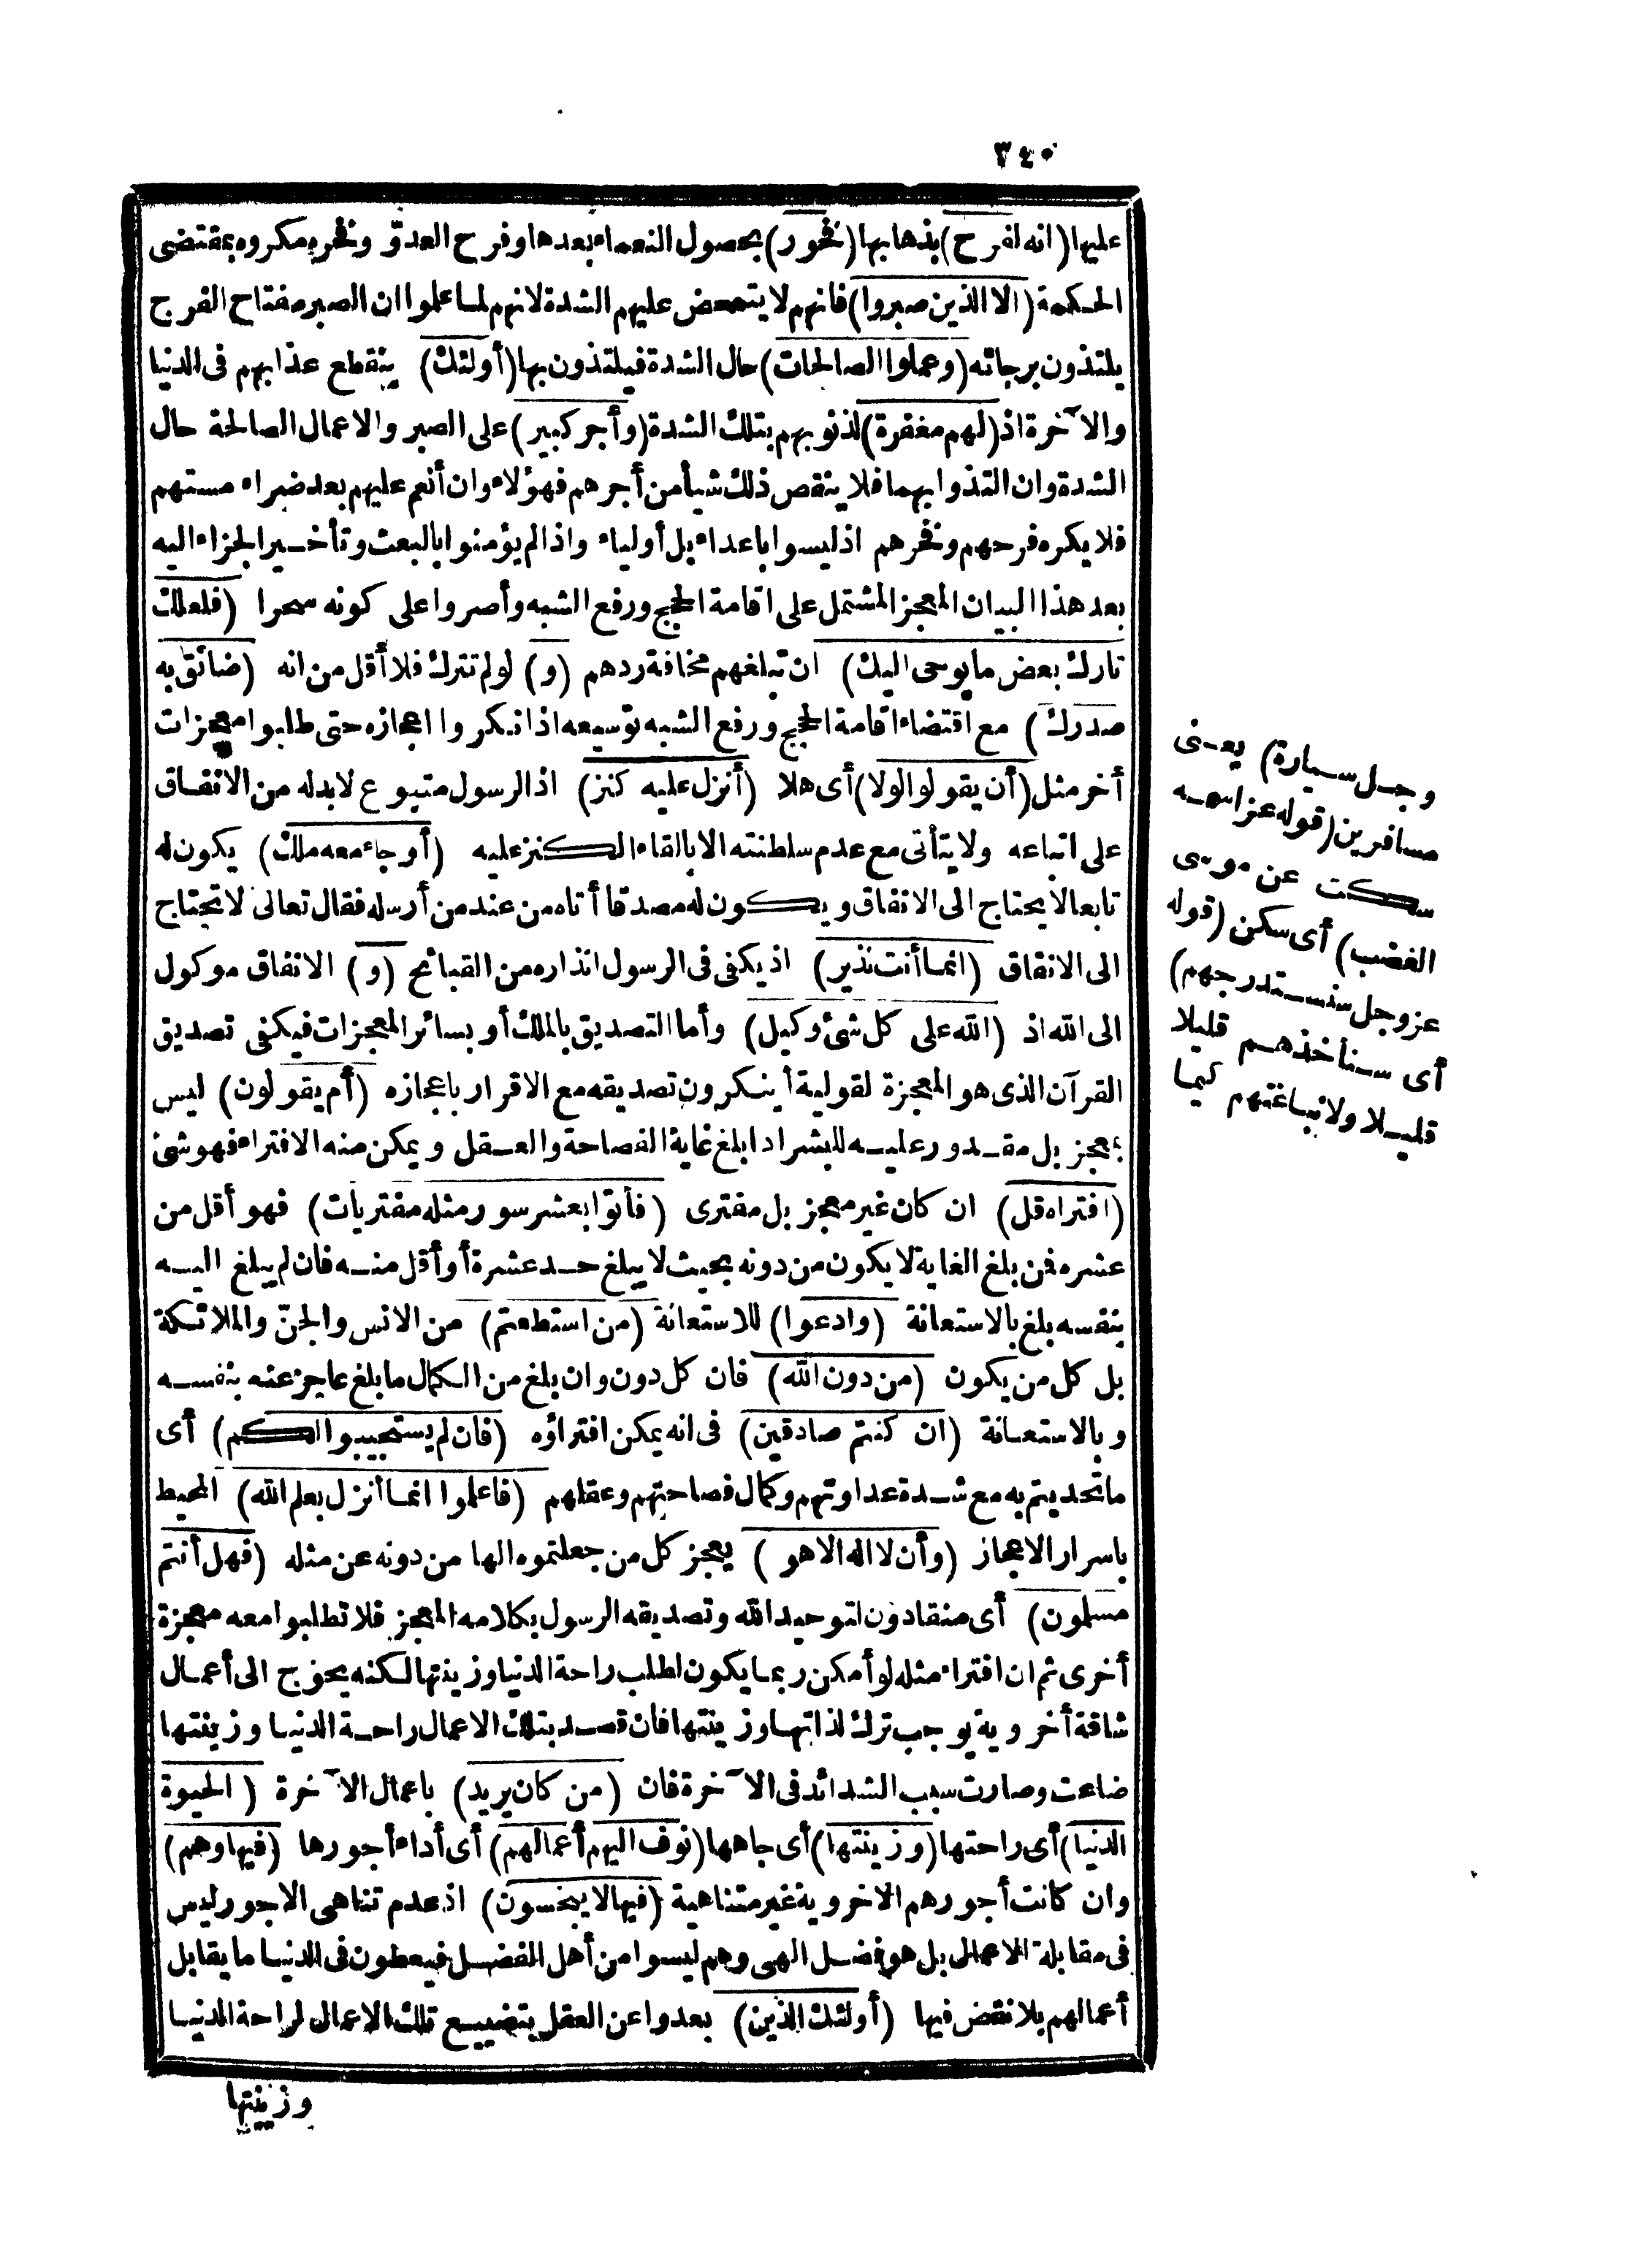 ٣٤٠
عليها (انه لفرح) بذهابها (فخور) بحصول النعماء بعدها وفرح العدوّ وفخره مكروه بمقتضى
الحكمة (الا الذين صبروا) فانهم لا يتمحض عليهم الشدة لانهم لما علموا ان الصبر مفتاح الفرج
يلتذون برجائه (وعملوا الصالحات) حال الشدة فيلتذون بها (أولئك) ينقطع عذابهم فى الدنيا
والآخرة اذ (لهم مغفرة) لذنوبهم بتلك الشدة (وأجر كبير) على الصبر والاعمال الصالحة حال
الشدة وان التذوا بهما فلا ينقص ذلك شيأ من أجرهم فهؤلاء وان أنعم عليهم بعد ضراء مستهم
فلا يكره فرحهم وفخرهم اذ ليسوا باعداء بل أولياء واذا لم يؤمنوا بالبعث وتأخير الجزاء اليه
بعد هذا البيان المعجز المشتمل على اقامة الحجج ورفع الشبه وأصروا على كونه سحرا (فلعلك
تارك بعض ما يوحى اليك) ان تبلغهم مخافة ردهم (و) لو لم تترك فلا أقل من انه (ضائق به
صدرك) مع اقتضاء اقامة الحجج ورفع الشبه توسيعه اذ انكروا اعجازه حتى طلبوا معجزات
أخر مثل (أن يقولوا لولا) أى هلا (أنزل عليه كنز) اذ الرسول متبوع لا بد له من الانفاق
على اتباعه ولا يتأتى مع عدم سلطنته الا بالقاء الكنز عليه (أو جاء معه ملك) يكون له
تابعا لا يحتاج الى الانفاق ويكون له مصدقا أتاه من عند من أرسله فقال تعالى لا تحتاج
الى الانفاق (انما أنت نذير) اذ يكفى فى الرسول انذاره من القبائح (و) الانفاق موكول
الى الله اذ (الله على كل شئ وكيل) وأما التصديق بالملك أو بسائر المعجزات فيكفى تصديق
القرآن الذى هو المعجزة لقولية أينكرون تصديقه مع الاقرار باعجازه (أم يقولون) ليس
بمعجز بل مقدور عليه للبشر اذا بلغ غاية الفصاحة والعقل ويمكن منه الافتراء فهو شئ
(افتراه قل) ان كان غير معجز بل مفترى (فأتوا بعشر سور مثله مفتريات) فهو أقل من
عشره فمن بلغ الغاية لا يكون من دونه بحيث لا يبلغ حد عشرة أو أقل منه فان لم يبلغ اليه
بنفسه بلغ بالاستعانة (وادعوا) للاستعانة (من استطعتم) من الانس والجنّ والملائكة
بل كل من يكون (من دون الله) فان كل دون وان بلغ من الكمال ما بلغ عاجز عنه بنفسه
وبالاستعانة (ان كنتم صادقين) فى انه يمكن افتراؤه (فان لم يستجيبوا لكم) أى
ما تحديتم به مع شدة عداوتهم وكمال فصاحتهم وعقلهم (فاعلموا انما أنزل بعلم الله) المحيط
باسرار الاعجاز (وأن لا اله الا هو) يعجز كل من جعلتموه الها من دونه عن مثله (فهل أنتم
مسلمون) أى منقادون لتوحيد الله وتصديقه الرسول بكلامه المعجز فلا تطلبوا معه معجزة
أخرى ثم ان افتراء مثله لو أمكن ربما يكون لطلب راحة الدنيا وزينتها لكنه يحوج الى أعمال
شاقة أخروية يوجب ترك لذاتها وزينتها فان قصد بتلك الاعمال راحة الدنيا وزينتها
ضاعت وصارت سبب الشدائد فى الآخرة فان (من كان يريد) باعمال الآخرة (الحيوة
الدنيا) أى راحتها (وزينتها) أى جاهها (نوف اليهم أعمالهم) أى أداء أجورها (فيها وهم)
وان كانت أجورهم الاخروية غير متناهية (فيها لا يبخسون) اذ عدم تناهى الاجور ليس
فى مقابلة الاعمال بل هو فضل الهى وهم ليسوا من أهل الفضل فيعطون فى الدنيا ما يقابل
أعمالهم بلا نقض فيها (أولئك الذين) بعدوا عن العقل بتضييع تلك الاعمال لراحة الدنيا
وزينتها
وجل سيارة) يعنى
مسافرين (قوله عز اسمه
سكت عن موسى
الغضب) أى سكن (قوله
عز وجل سنستدرجهم)
أى سنأخذهم قليلا
قليلا ولا نباغتهم كيما